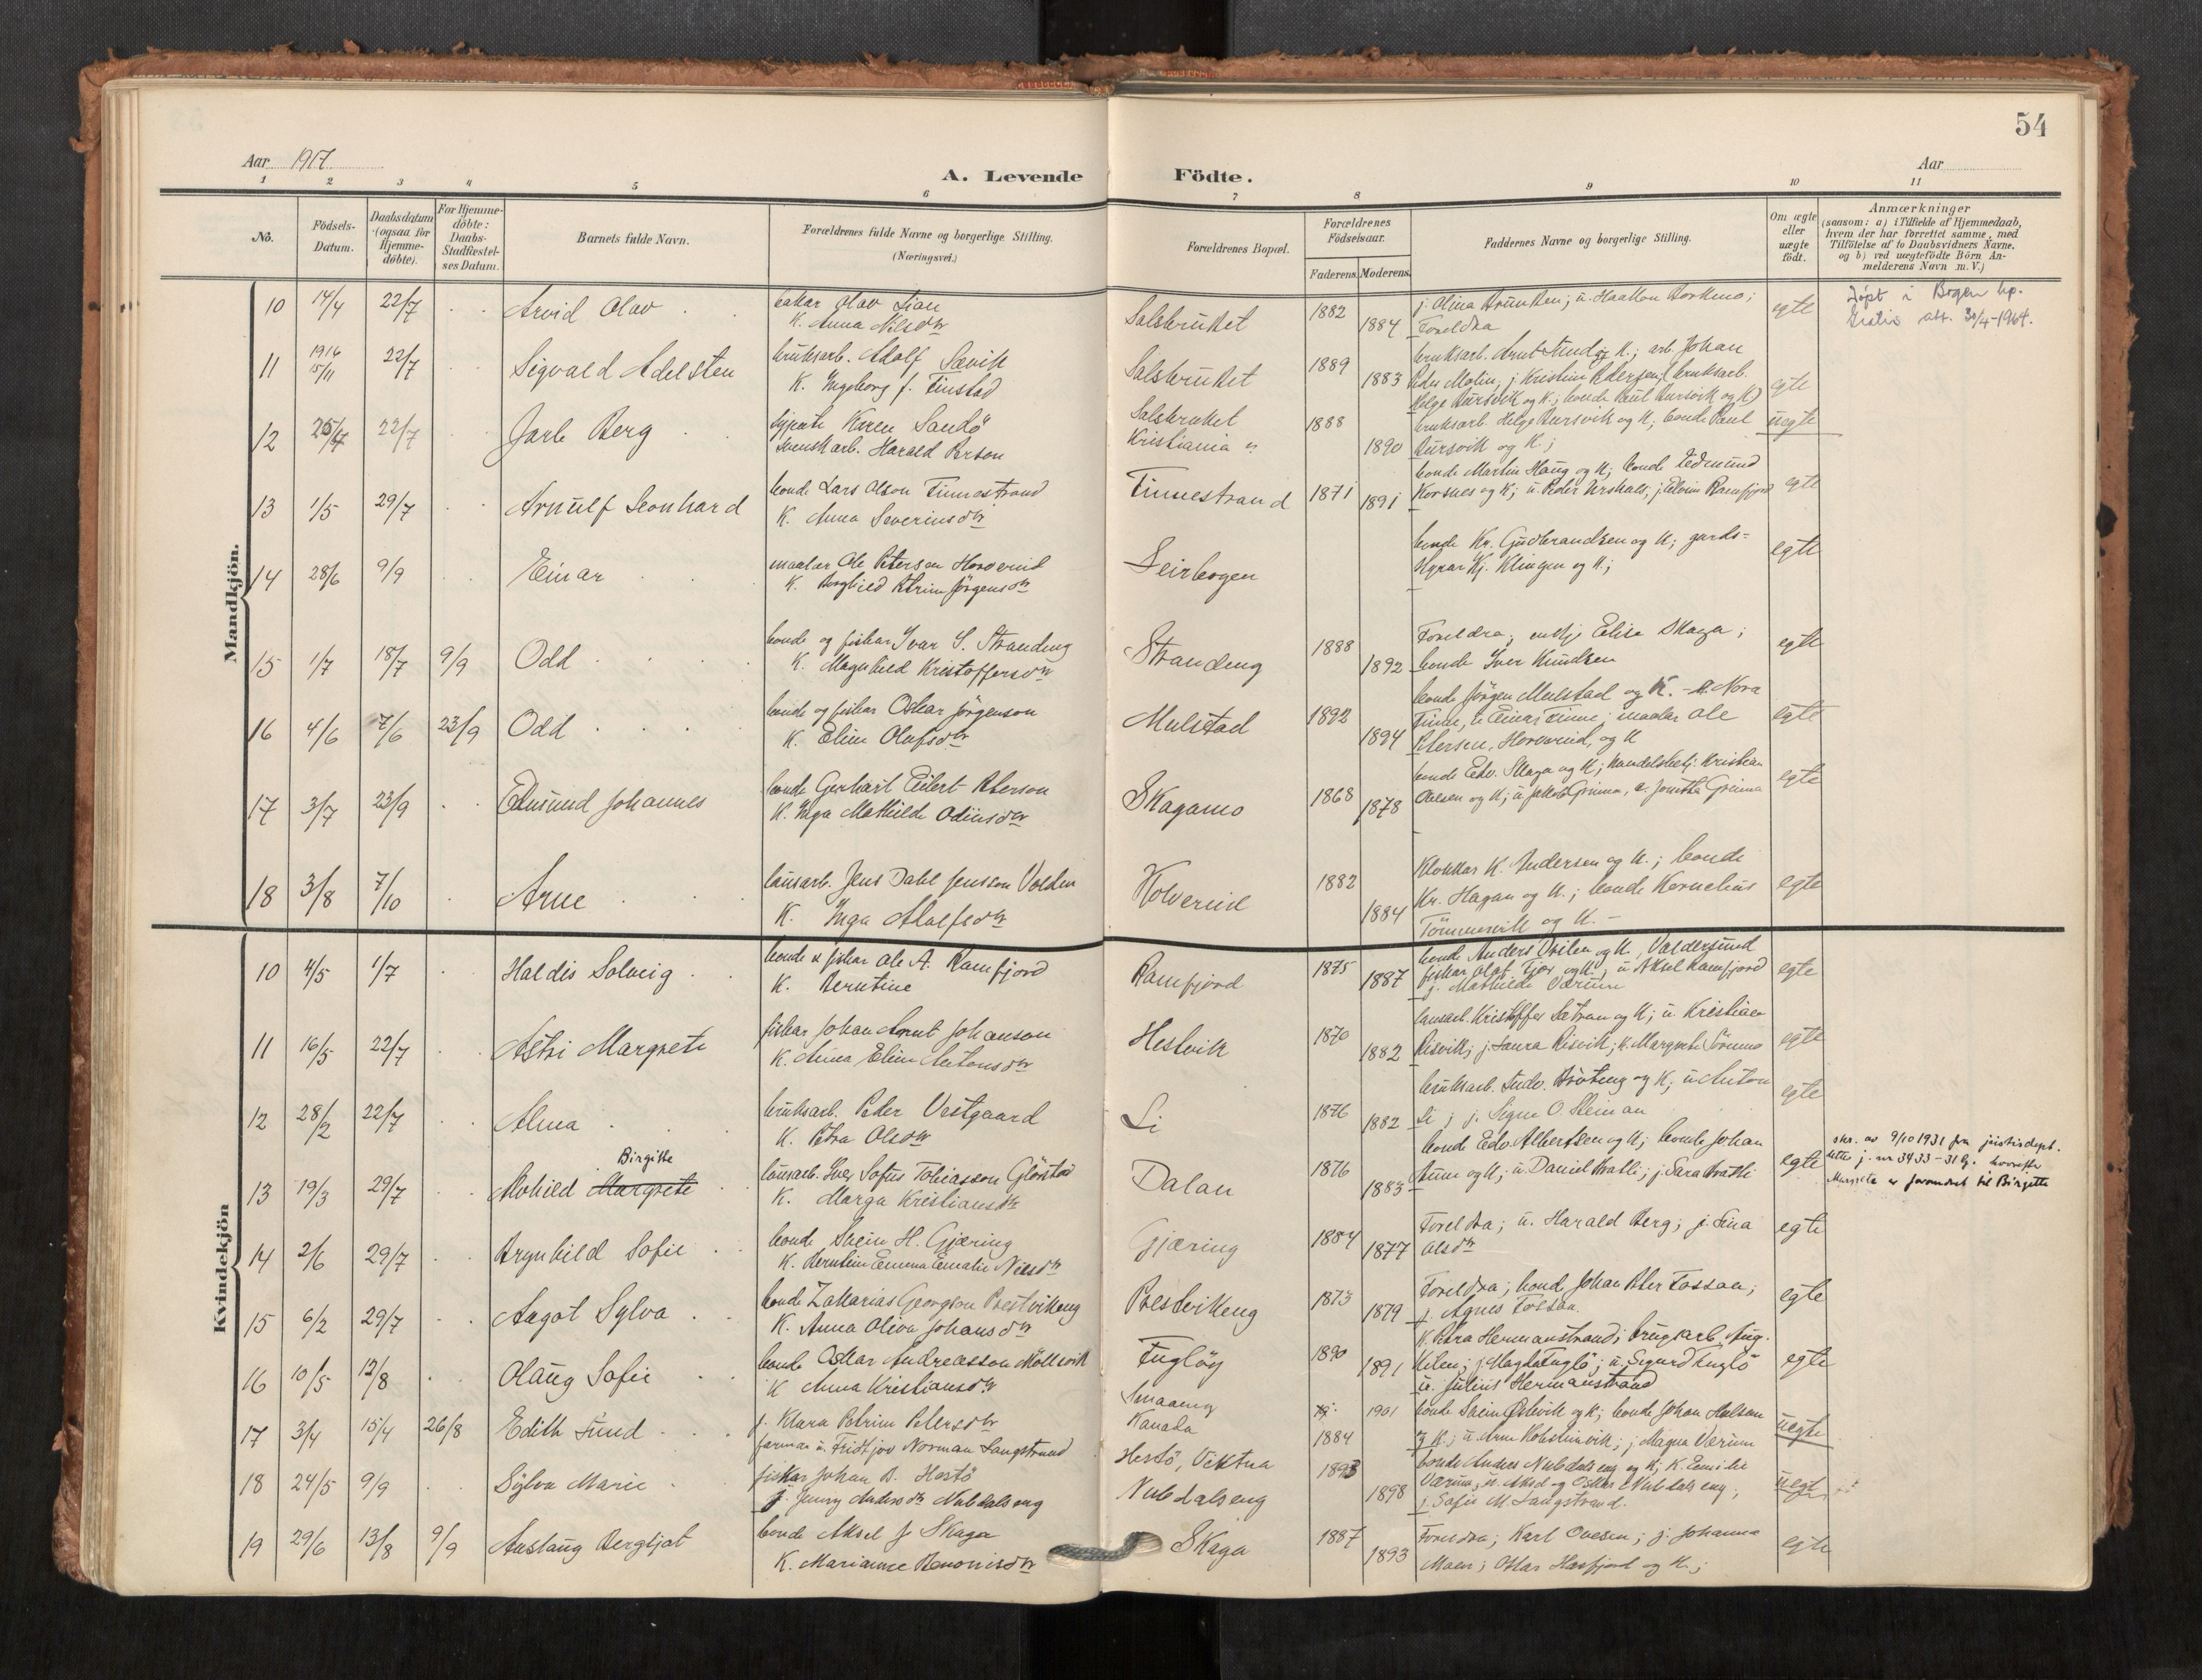 54
Aar 1917
A. Levende Födte.
Aar
1 2 3 4 5 6 7 8 9 10 11
No.
Födsels-
Datum.
Daabsdatum
(ogsaa for
Hjemme-
döbte).
For Hjemme-
döbte:
Daabs-
Stadfæstel-
ses Datum.
Barnets fulde Navn.
Forældrenes fulde Navne og borgerlige Stilling.
(Næringsvei.)
Forældrenes Bopæl.
Forældrenes
Födselsaar.
Faderens. Moderens.
Faddernes Navne og borgerlige Stilling.
Om ægte
eller
uægte
födt.
Anmærkninger
(saasom: a) i Tilfælde af Hjemmedaab,
hvem der har forrettet samme, med
Tilföielse af to Daabsvidners Navne,
og b) ved uægtefödte Börn An-
melderens Navn m. V.)
Mandkjön.
10 14/4 22/7 Arvid Olav
bakar Olav Lian
K. Anna Nilsdtr
Salsbruket 1882 1884
Foreldra
egte
Döpt i Bogen kp.
att. 30/4-1964.
11 1916 15/11 22/7 Sigvald Adelsten
bruksarb. Adolf Sævik
K. Ingeborg f. Finstad
Salsbruket 1889 1883
bruksarb. og K.; arb. Johan
Peder Molin; j. Kristine Pedersen; bruksarb.
Helge Dursvik og K.; bonde Paul Dursvik og K)
egte
12 25/4 22/7 Jarle Berg
Karen Sandö
svensk arb. Harald Person
Salsbruket
Kristiania
1888 1890
bruksarb. Helge Dursvik og K; bonde Paul
Dursvik og K;
uegte
13 1/5 29/7 Arnulf Leonhard
bonde Lars Olson Finnestrand
K. Anna Severinsdtr
Finnestrand 1871 1891
bonde Martin Haug og K; bonde Edmund
Korsnes og K; u. Peder j. Elvine Ramfjord
egte
14 28/6 9/9 Einar
maalar Ole Peterson Horverud
K. Borghild Petrine Jörgensdtr
Leirbogen
bonde Kr. Gudbrandsen og K; gards-
styrar Kj. Klingen og K.;
egte
15 1/7 18/7 9/9 Odd
bonde og fiskar Ivar S. Strandeng
K. Magnhild Kristoffersdtr
Strandeng 1888 1892
Foreldra; enkje Elise Skaga;
bonde Iver Knudsen
egte
16 4/6 7/6 23/9 Odd
bonde og fiskar Oskar Jörgenson
K. Eline Olufsdtr
Mulstad 1892 1894
bonde Jörgen Mulstad og K. Nora
Finne, u. Einar Finne; maalar Ole
Petersen, Horverud, og K
egte
17 3/7 23/9 Edmund Johannes
bonde Gerhart Eilert Peterson
K. Inga Mathilde Odinsdtr
Skagamo 1868 1878
bonde Edv. Skaga og K; handelsbetj. Kristian
Olelsen og K; u. Jakob Grinna, Grinna
egte
18 3/8 7/10 Arne
lausarb. Jens Dahl Jenson Volden
K. Inga Adolfsdtr
Kolvereid 1882 1884
Klokkar K. Andersen og K.; bonde
Kr. Hagan og K.; bonde Kornelius
Tönnesvik og K.
egte
Kvindekjön
10 4/5 1/7 Haldis Solveig
bonde & fiskar Ole A. Ramfjord
K. Berntine
Ramfjord 1875 1887
bonde Anders og K., Valdersund
fiskar Olaf Fjær og K; u. Aksel Ramfjord
j. Mathilde Værum
egte
11 16/5 22/7 Astri Margrete
fiskar Johan Arnt Johanson
K. Anna Eline Antonsdtr
Hestvik 1870 1882
lausarb. Kristoffer Sætran og K; u. Kristian
Risvik; j. Laura Risvik; K. Margrete
egte
12 28/2 22/7 Alma
bruksarb. Peter Vestgaard
K. Petra Olsdtr
Li 1876 1882
bruksarb. Ludv. Bröteng og K; u. Anton
Li; j. Signe O. Steinan
egte
13 19/3 29/7 Birgitte
Mohild Margrete
lausarb. Sofus Tobiasson
K. Marga Kristiansdtr
Dalan 1876 1883
bonde Edv. Albertsen og K; bonde Johan
Aune og K; u. Daniel Bratli; j. Sara Bratli
egte
skr. av 9/10 1931 fra justisdept.
dette j. nr 3433-31 G. hvorefter
Margrete er forandret til Birgitte
14 2/6 29/7 Brynhild Sofie
bonde Svein H. Gjæring
K. Berntine Emma Emalie Nilsdtr
Gjæring 1884 1877
Foreldra; u. Harald Berg; j. Lina
Olsdtr
egte
15 6/2 29/7 Aagot Sylva
bonde Zakarias Georgson Prestvikeng
K. Anna Oliva Johansdtr
Prestvikeng 1873 1879
Foreldra; bonde Johan Peter Fossaa;
j. Agnes Fossaa.
egte
16 10/5 12/8 Olaug Sofie
bonde Oskar Andreasson Möllevik
K Anna Kristiansdtr
Fuglöy 1890 1891
K. Petra Hermanstrand; brugsarb. Aug.
Kilen; j. Magda Fuglö; u. Sigurd Fuglö
u. Julius Hermanstrand
egte
17 3/4 15/4 26/8 Edith Lund
j. Klara Petrine Petersdtr
farmar u. Fridtjov Norman Langstrand
Smaaeng
Kanada
1901 1884
bonde Svein Östevik og K; bonde Johan
og K.; u. Arne j. Magna Værum
uegte
18 24/5 9/9 Sylva Marie
fiskar Johan B. Hestö
j. Jenny Andersdtr Nubdalseng
Hestö, Viktna
Nubdalseng
1893 1898
bonde Anders Nubdalseng og K; K. Emilie
Værum; u. Aksel og Oskar Nubdalseng;
j. Sofie M. Langstrand.
uegte
19 29/6 13/8 9/9 Aaslaug Bergljot
bonde Aksel J Skaga
K. Marianne Benonisdtr
Skaga 1887 1893
Foreldra; Karl Ovesen; j. Johanna
Moen; Oskar Horsfjord og K.;
egte